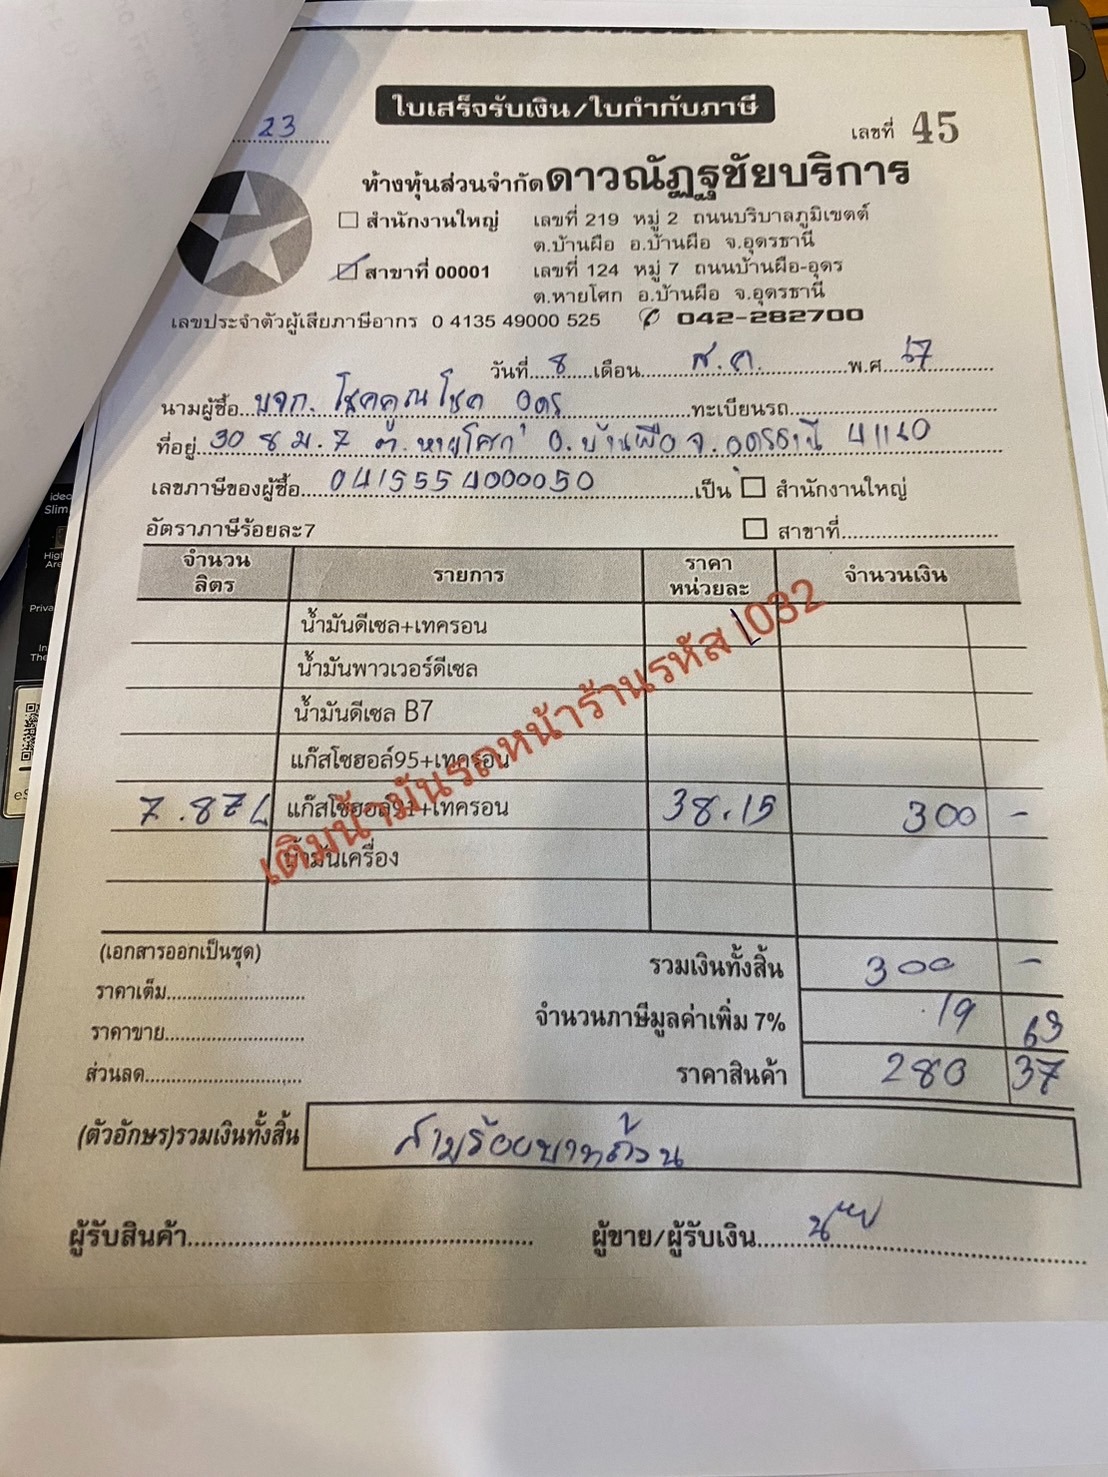 ใบเสร็จรับเงิน/ใบกำกับภาษี
23
เลขที่ 45
ห้างหุ้นส่วนจำกัดดาวณัฏฐชัยบริการ
☐ สำนักงานใหญ่ เลขที่ 219 หมู่ 2 ถนนบริบาลภูมิเขตต์
ต.บ้านผือ อ.บ้านผือ จ.อุดรธานี
☑ สาขาที่ 00001 เลขที่ 124 หมู่ 7 ถนนบ้านผือ-อุดร
ต.หายโศก อ.บ้านผือ จ.อุดรธานี
เลขประจำตัวผู้เสียภาษีอากร 0 4135 49000 525 ✆ 042-282700
วันที่ 8 เดือน ส.ค. พ.ศ. 67
นามผู้ซื้อ บจก. โชคคูณโชค อุดร ทะเบียนรถ
ที่อยู่ 308 ม.7 ต.หายโศก อ.บ้านผือ จ.อุดรธานี 41160
เลขภาษีของผู้ซื้อ 0415554000050 เป็น ☐ สำนักงานใหญ่
อัตราภาษีร้อยละ7 ☐ สาขาที่
จำนวน ลิตร รายการ ราคา หน่วยละ จำนวนเงิน
น้ำมันดีเซล+เทครอน
น้ำมันพาวเวอร์ดีเซล
น้ำมันดีเซล B7
แก๊สโซฮอล์95+เทครอน
7.87L แก๊สโซฮอล์91+เทครอน 38.15 300 -
น้ำมันเครื่อง
เติมน้ำมันรถหน้าร้านรหัส L032
(เอกสารออกเป็นชุด) รวมเงินทั้งสิ้น 300 -
ราคาเต็ม
จำนวนภาษีมูลค่าเพิ่ม 7% 19 63
ราคาขาย
ส่วนลด ราคาสินค้า 280 37
(ตัวอักษร)รวมเงินทั้งสิ้น สามร้อยบาทถ้วน
ผู้รับสินค้า ผู้ขาย/ผู้รับเงิน